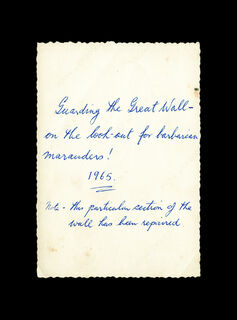 Guarding the Great Wall -
on the look-out for barbarian
marauders!
1965.
Note - this particular section of the
wall has been repaired